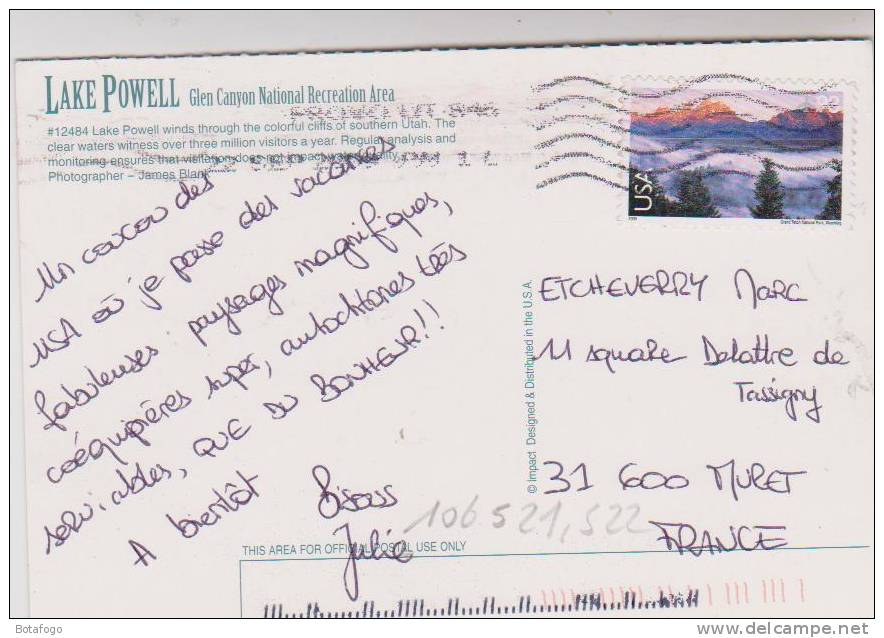 LAKE POWELL Glen Canyon National Recreation Area
#12484 Lake Powell winds through the colorful cliffs of southern Utah. The
clear waters witness over three million visitors a year. Regular analysis and
monitoring ensures that visitation does not impact water quality.
Photographer – James Blank
Un coucou des
USA où je passe des vacances
fabuleuses paysages magnifiques,
coéquipières super, autochtones très
serviables, QUE DU BONHEUR!!
A bientôt
Bisous
Julie
USA
Grand Teton National Park, Wyoming
© Impact Designed & Distributed in the U.S.A.
ETCHEVERRY MARC
11 square Delattre de
Tassigny
31 600 MURET
FRANCE
106 521,522
THIS AREA FOR OFFICIAL POSTAL USE ONLY
Botafogo
www.delcampe.net